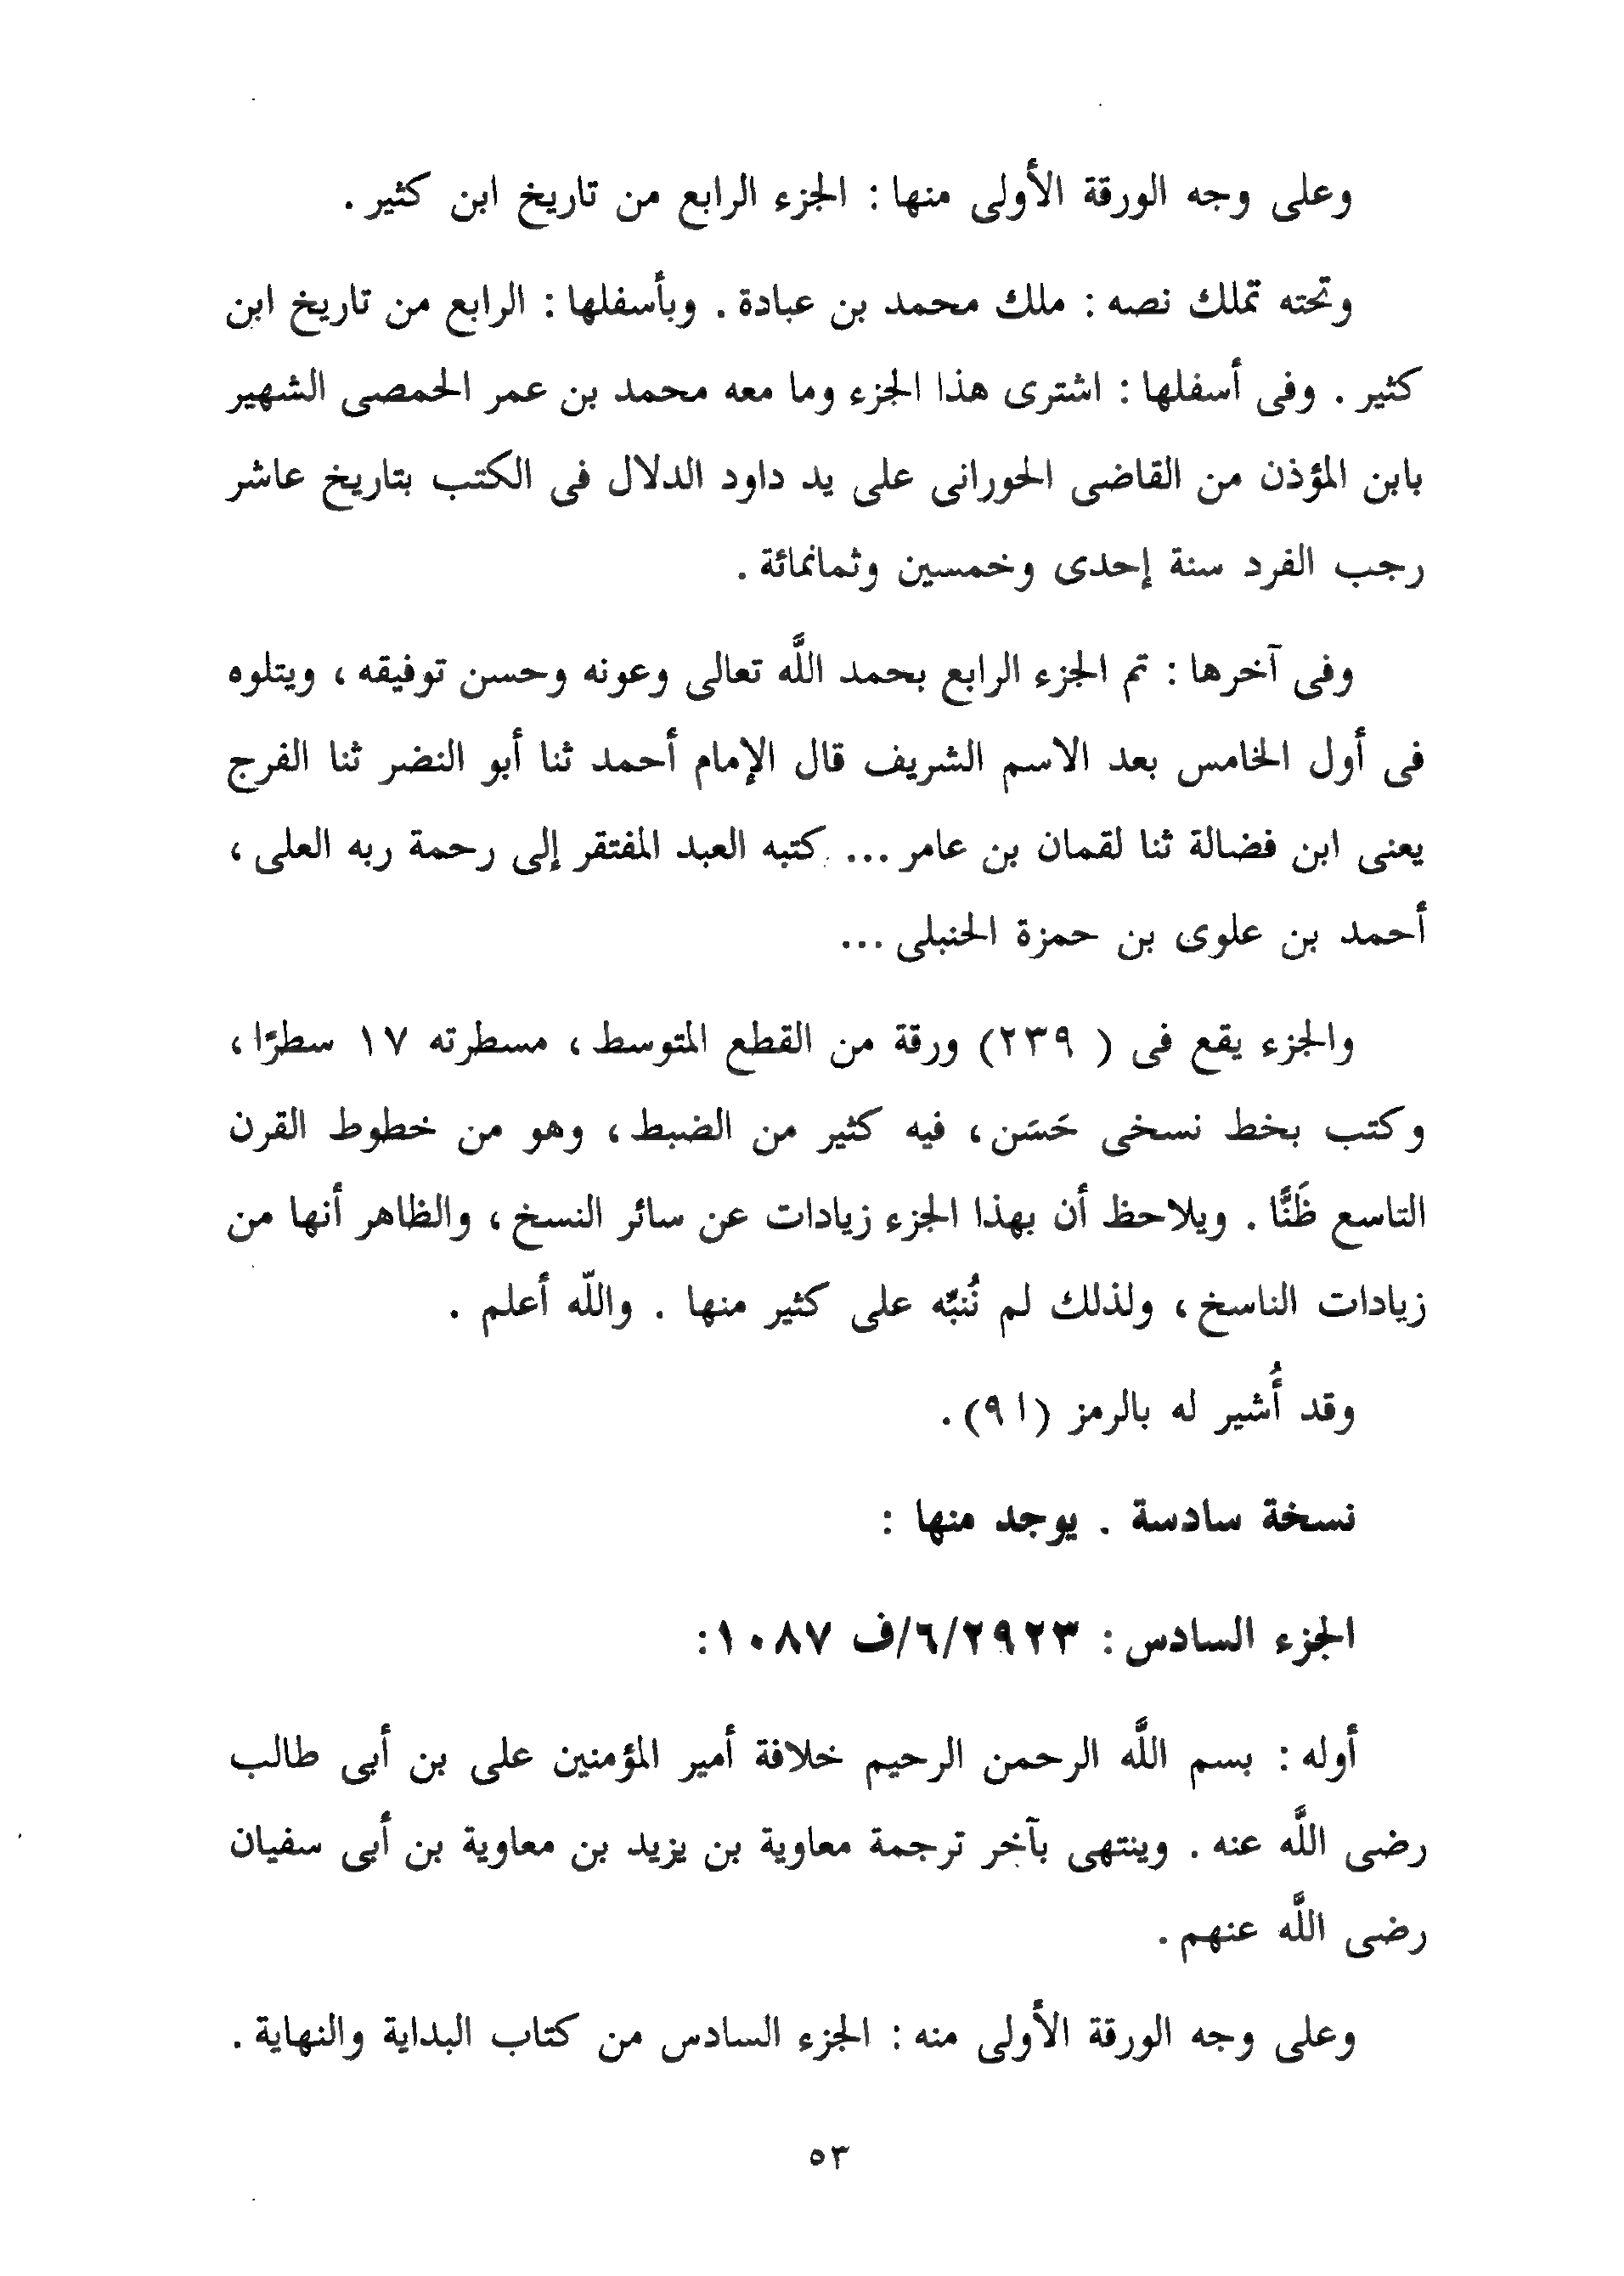 وعلى وجه الورقة الأولى منها : الجزء الرابع من تاريخ ابن كثير .
وتحته تملك نصه : ملك محمد بن عبادة . وبأسفلها : الرابع من تاريخ ابن
كثير . وفى أسفلها : اشترى هذا الجزء وما معه محمد بن عمر الحمصى الشهير
بابن المؤذن من القاضى الحورانى على يد داود الدلال فى الكتب بتاريخ عاشر
رجب الفرد سنة إحدى وخمسين وثمانمائة .
وفى آخرها : تم الجزء الرابع بحمد اللَّه تعالى وعونه وحسن توفيقه ، ويتلوه
فى أول الخامس بعد الاسم الشريف قال الإمام أحمد ثنا أبو النضر ثنا الفرج
يعنى ابن فضالة ثنا لقمان بن عامر ... كتبه العبد المفتقر إلى رحمة ربه العلى ،
أحمد بن علوى بن حمزة الحنبلى ...
والجزء يقع فى ( ٢٣٩) ورقة من القطع المتوسط ، مسطرته ١٧ سطرًا ،
وكتب بخط نسخى حَسَن ، فيه كثير من الضبط ، وهو من خطوط القرن
التاسع ظَنًّا . ويلاحظ أن بهذا الجزء زيادات عن سائر النسخ ، والظاهر أنها من
زيادات الناسخ ، ولذلك لم نُنبِّه على كثير منها . واللّه أعلم .
وقد أُشير له بالرمز (ا ٩) .
نسخة سادسة . يوجد منها :
الجزء السادس : ٦/٢٩٢٣/ف ١٠٨٧:
أوله : بسم اللَّه الرحمن الرحيم خلافة أمير المؤمنين على بن أبى طالب
رضى اللَّه عنه . وينتهى بآخر ترجمة معاوية بن يزيد بن معاوية بن أبى سفيان
رضى اللَّه عنهم .
وعلى وجه الورقة الأولى منه : الجزء السادس من كتاب البداية والنهاية .
٥٣